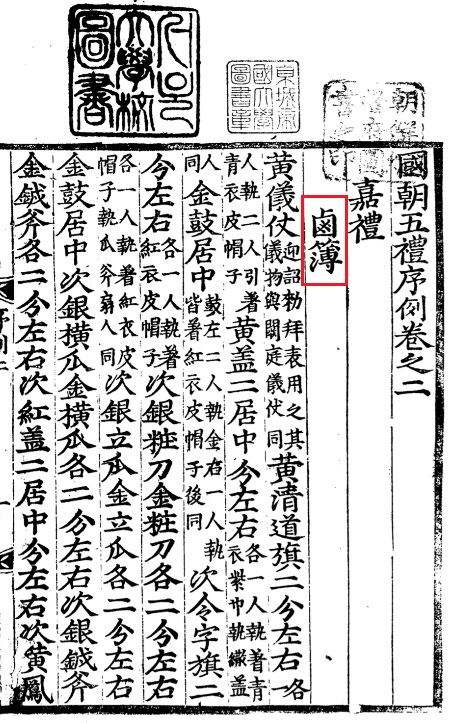 서울大學校圖書
京城帝國大學圖書章
國朝五禮序例卷之二
嘉禮
鹵簿
黃儀仗迎詔勑拜表用之其儀物與闕庭儀仗同黃清道旗二分左右各一
人執二人引著青衣皮帽子黃盖二居中分左右各一人執著青衣紫巾執繖盖
人同金鼓居中鼓左二人執金右一人執皆著紅衣皮帽子後同次令字旗二
分左右各一人執著紅衣皮帽子次銀粧刀金粧刀各二分左右
各一人執著紅衣皮帽子執瓜斧扇人同次銀立瓜金立瓜各二分左右
金鼓居中次銀橫瓜金橫瓜各二分左右次銀鉞斧
金鉞斧各二分左右次紅盖二居中分左右次黃鳳